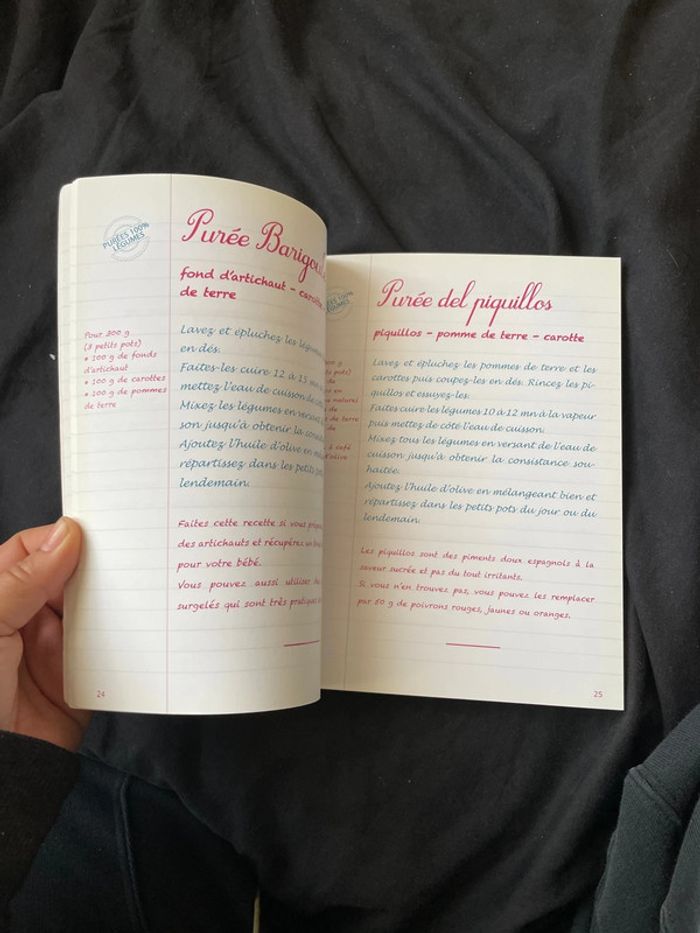 PURÉES 100%
LÉGUMES
Purée Barigou
fond d'artichaut - carotte
de terre
Pour 200 g
(3 petits pots)
• 100 g de fonds
d'artichaut
• 100 g de carottes
• 100 g de pommes
de terre
Lavez et épluchez les
en dés.
Faites-les cuire 12 à 15 mn
mettez l'eau de cuisson de
Mixez les légumes en versant
son jusqu'à obtenir la
Ajoutez l'huile d'olive en
répartissez dans les petits
lendemain.
Faites cette recette si vous
des artichauts et récupérez un
pour votre bébé.
Vous pouvez aussi utiliser
surgelés qui sont très pratiques
24
100%
Purée del piquillos
piquillos - pomme de terre - carotte
g
pots)
de
en
naturel
de
de terre
de
à café
d'olive
Lavez et épluchez les pommes de terre et les
carottes puis coupez-les en dés. Rincez les pi-
quillos et essuyez-les.
Faites cuire les légumes 10 à 12 mn à la vapeur
puis mettez de côté l'eau de cuisson.
Mixez tous les légumes en versant de l'eau de
cuisson jusqu'à obtenir la consistance sou-
haitée.
Ajoutez l'huile d'olive en mélangeant bien et
répartissez dans les petits pots du jour ou du
lendemain.
Les piquillos sont des piments doux espagnols à la
saveur sucrée et pas du tout irritants.
Si vous n'en trouvez pas, vous pouvez les remplacer
par 50 g de poivrons rouges, jaunes ou oranges.
25